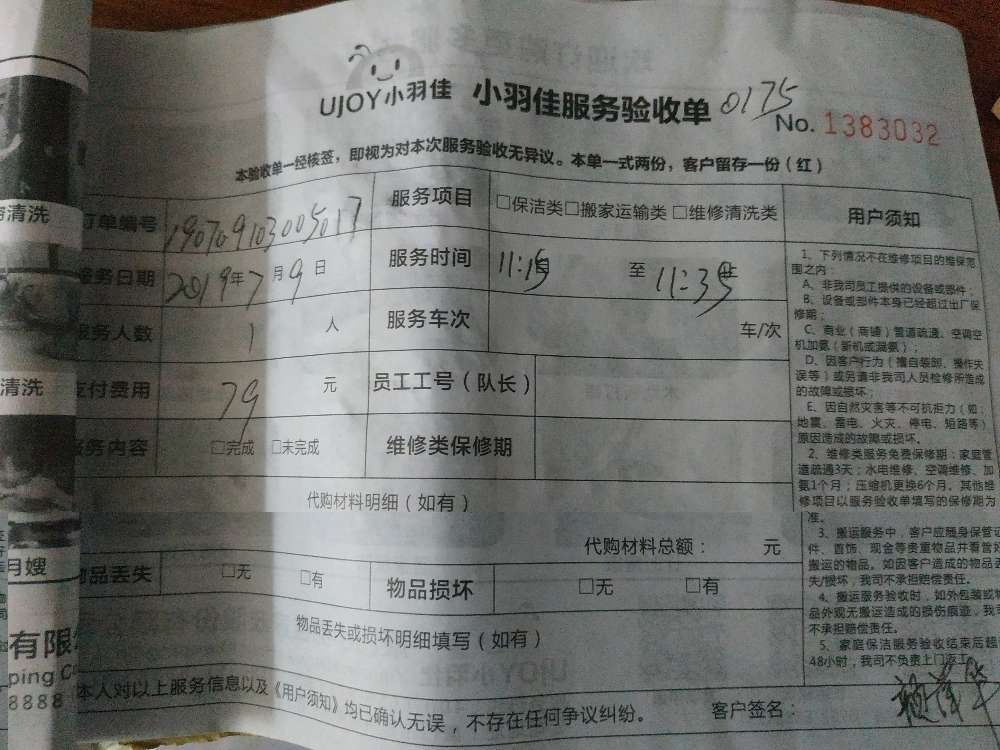 UJOY小羽佳 小羽佳服务验收单 0175
No. 1383032
本验收单一经核签，即视为对本次服务验收无异议。本单一式两份，客户留存一份（红）
订单编号 服务项目 □保洁类□搬家运输类□维修清洗类 用户须知
服务日期 2019年7月9日 服务时间 11:15 至 11:35
服务人数 1 人 服务车次 车/次
支付费用 79 元 员工工号（队长）
服务内容 □完成 □未完成 维修类保修期
代购材料明细（如有）
代购材料总额： 元
物品丢失 □无 □有 物品损坏 □无 □有
物品丢失或损坏明细填写（如有）
本人对以上服务信息以及《用户须知》均已确认无误，不存在任何争议纠纷。 客户签名：
1、下列情况不在维修项目的维保范
围之内：
A、非我司员工提供的设备或部件；
B、设备或部件本身已经超过出厂保
修期；
C、商业（商铺）管道疏通、空调空
机加氨（新机或漏氨）；
D、因客户行为（擅自装卸、操作失
误等）或另请非我司人员检修所造成
的故障或损坏；
E、因自然灾害等不可抗拒力（如：
地震、雷电、火灾、停电、短路等）
原因造成的故障或损坏。
2、维修类服务免费保修期：家庭管
道疏通3天；水电维修、空调维修、加
氨1个月；压缩机更换6个月。其他维
修项目以服务验收单填写的保修期为
准。
3、搬运服务中，客户应随身保管证
件、首饰、现金等贵重物品并看管好
搬运的物品。如因客户造成的物品丢
失/损坏，我司不承担赔偿责任。
4、搬运服务验收时，如外包装或物
品外观无搬运造成的损伤痕迹，我司
不承担赔偿责任。
5、家庭保洁服务验收结束后超
48小时，我司不负责上门返工。
清洗
清洗
月嫂
有限
ping C
8888